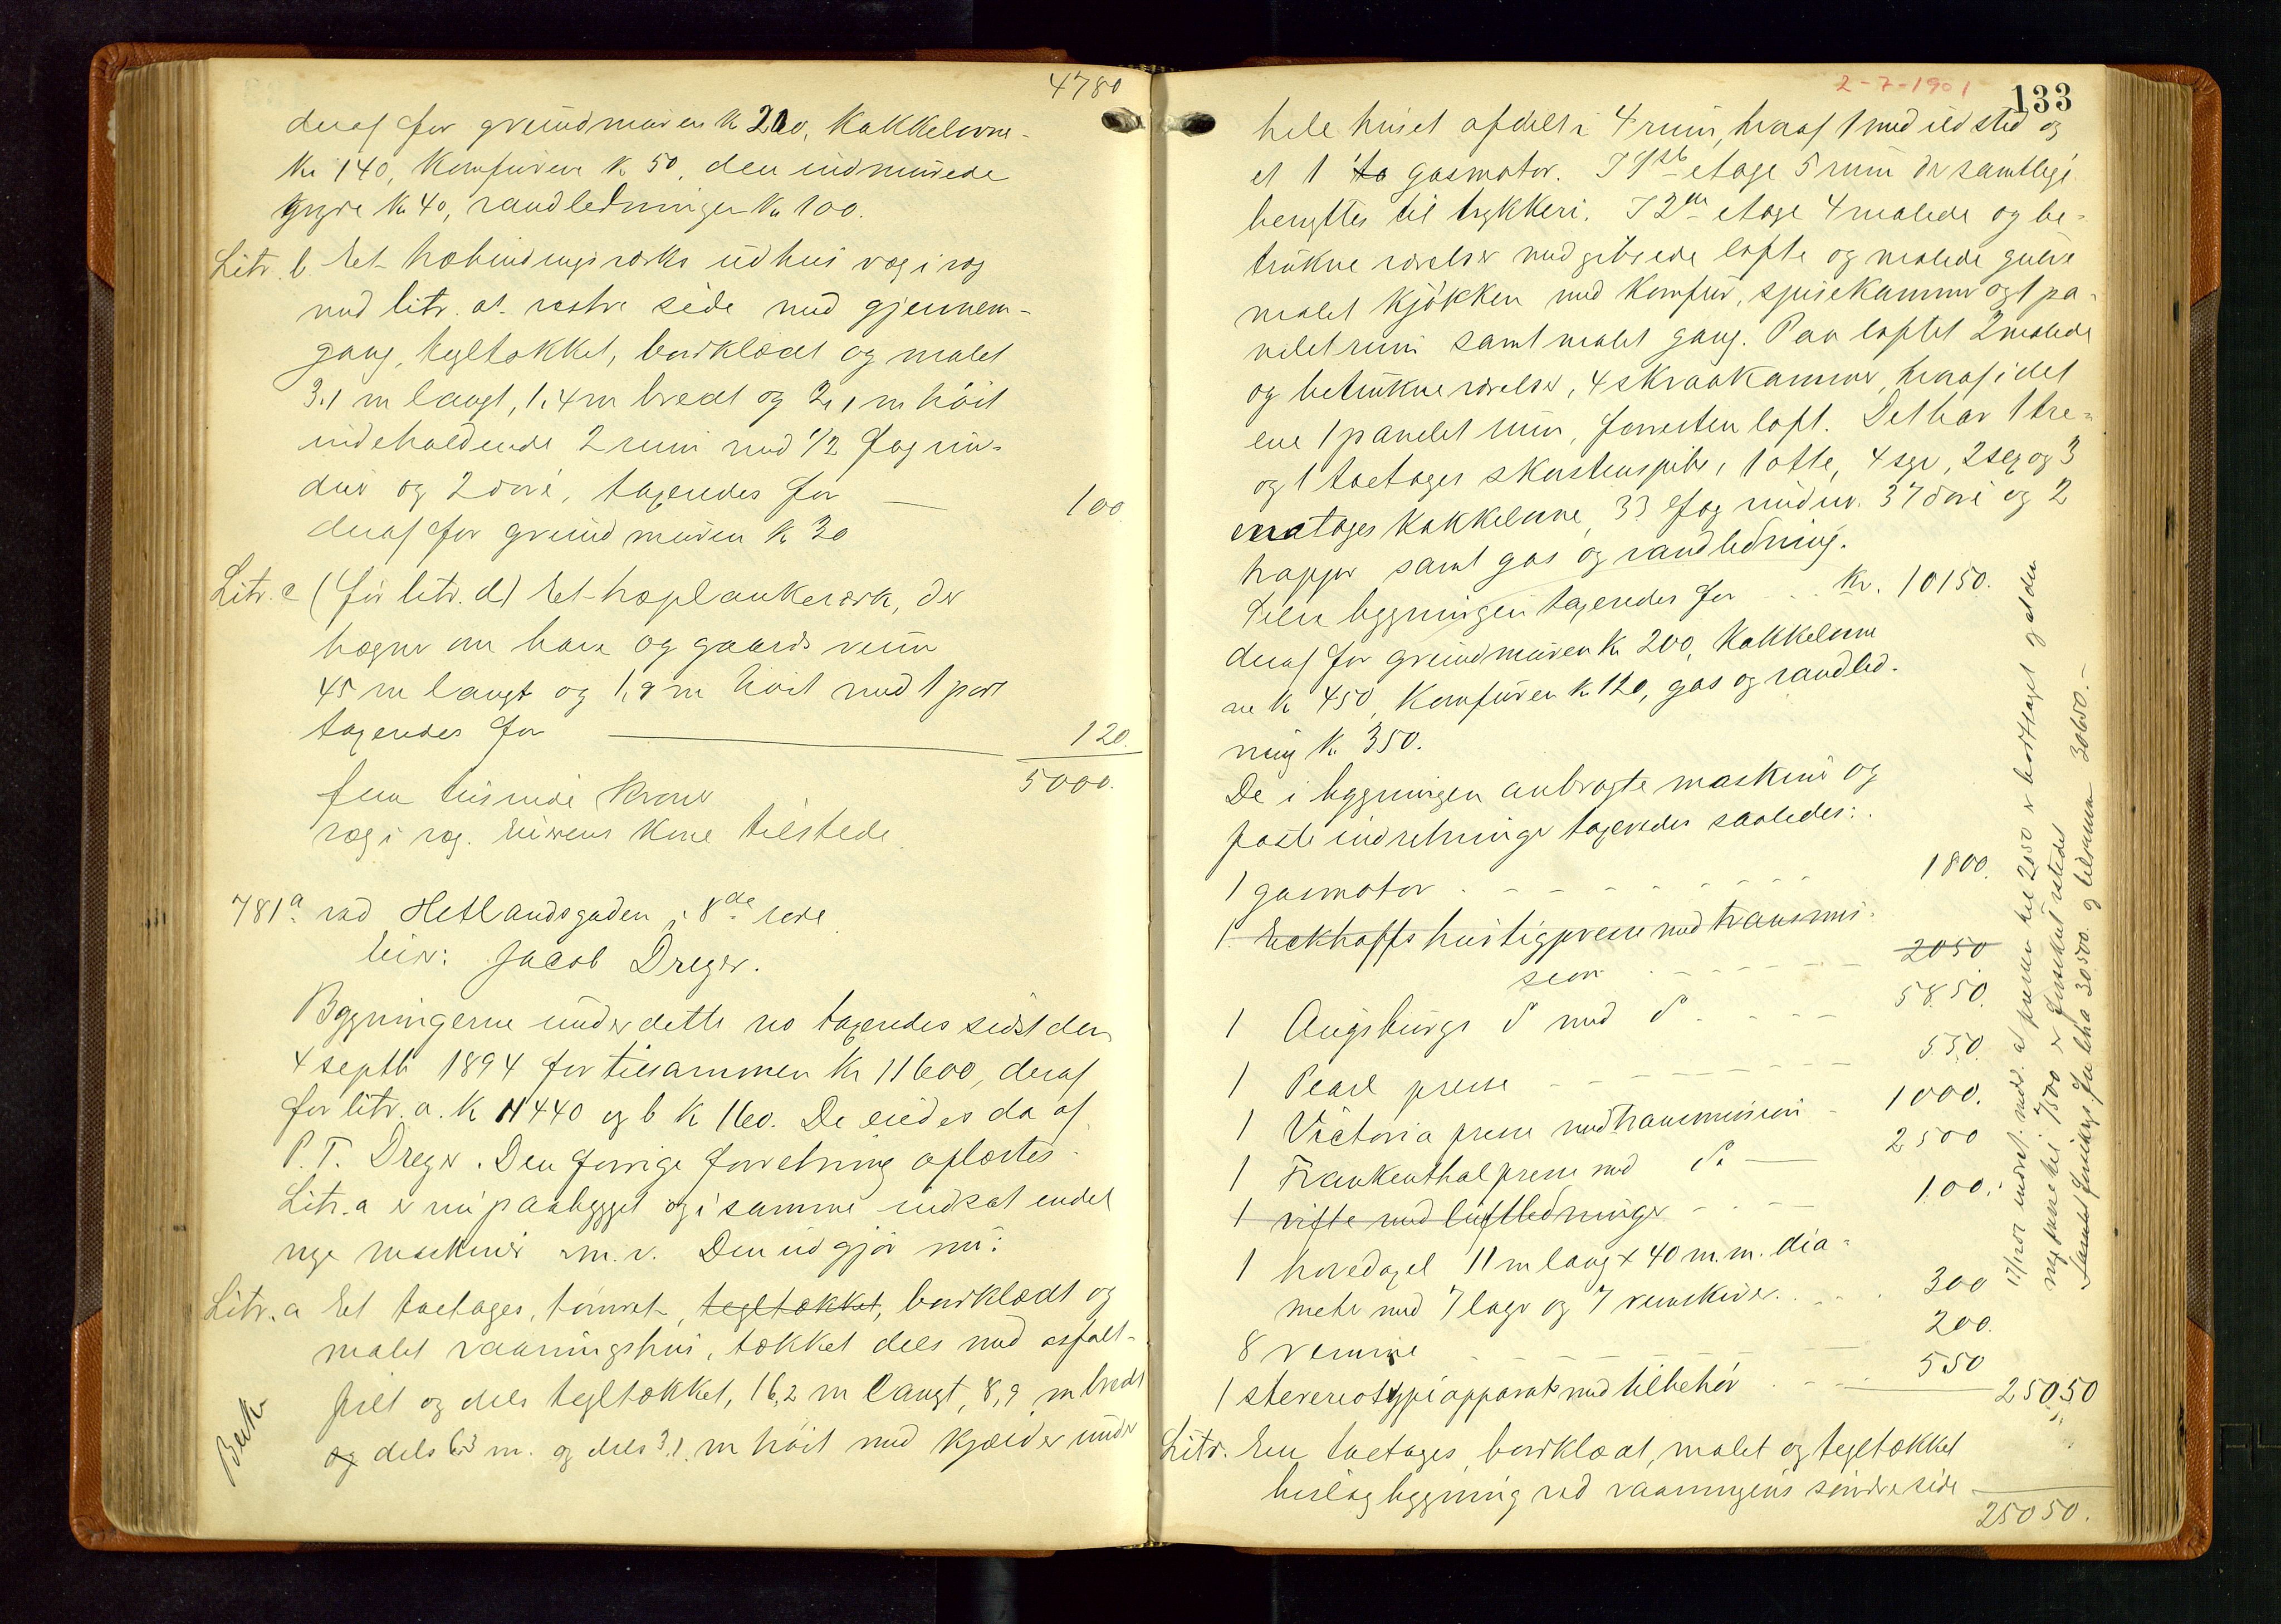 4780
deraf for grundmuren K 210, Kakkelovne-
Kr 140, Komfuren K 50, den indmurede
gryde Kr 40, vandledningen Kr 100.
Litr. b. Et træbindingsværks udhus væg i væg
med litr. a's vestre side med gjennem-
gang, tegltækket, bordklædt og malet
3,1 m langt, 1,4 m bredt og 2,1 m höit
indeholdende 2 rum med 1/2 fag vin-
duer og 2 döre, taxeredes for — 100
deraf for grundmuren K 30
Litr. c (för litr. d) Et træplankeværk, der
hegner om have og gaards rum
45 m langt og 1,9 m höit med 1 port
taxeredes for — 120.
5000.
fem tusinde Kroner
væg i væg. Eierens Kone tilstede.
781a ved Hetlandsgaden i 8de rode
Eier: Jacob Dreyer.
Bygningerne under dette no taxeredes sidst den
4 septb 1894 for tilsammen Kr 11600, deraf
for litr. a. K 11440 og b K 160. De eiedes da af
P. T. Dreyer. Den forrige forretning oplæstes.
Litr. a er nu paabygget og i samme indsat endel
nye maskiner m. v. Den udgjör nu:
Litr. a Et toetages, tömret, tegltækket, bordklædt og
malet vaaningshus, tækket dels med asfalt-
filt og dels tegltækket, 16,2 m langt, 8,9 m bredt
og dels 6,3 m. og dels 3,1 m höit med Kjælder under
2-7-1901
133
hele huset afdelt i 4 rum, hvoraf 1 med ildsted og
et 1 to gasmotor. I 1ste etage 5 rum der samtlige
benyttes til trykkeri. I 2den etage 4 malede og be-
trukne værelser med gibsede lofte og malede gulve
malet Kjökken med Komfur, spisekammer og 1 pa-
nelet rum samt malet gang. Paa loftet 2 malede
og betrukne værelser, 4 skraakammer, hvoraf i det
ene 1 panelet rum, forresten loft. Det har 1 tre-
og 1 toetages skorstenspibe, 1 otte, 4 syv, 2 sex og 3
enetages Kakkelovne, 33 fag vinduer. 37 döre og 2
trapper samt gas og vandledning.
Hele bygningen taxeredes for . . . Kr. 10150.
deraf for grundmuren K 200, Kakkelovne
ne K 450, Komfuren K 120, gas og vandled-
ning K 350.
De i bygningen anbragte maskiner og
faste indretninger taxeredes saaledes:
1 gasmotor . . . 1800.
1. Eckhoffs hurtigpresse med transmis-
sion . . . 2050
1 Augsburgs do med do . . . 5850.
1 Pearl presse . . . 550.
1 Victoria presse med transmission . . 1000.
1 Frankenthal presse med do — 2500
1 vifte med luftledninger . . . 100.
1 hovedaxel 11 m lang x 40 m.m. dia-
meter med 7 lager og 7 remskiver . . . 300
8 remme . . . 200.
1 stereotypiapparat med tilbehör . . . 550
25050
Litr. En toetages, bordklædt, malet og tegltækket
bislagbygning ved vaaningens söndre side
25050.
at pressen til 2050 er borttaget og at den
samlet for litra 30500 og tilsammen 30650.-